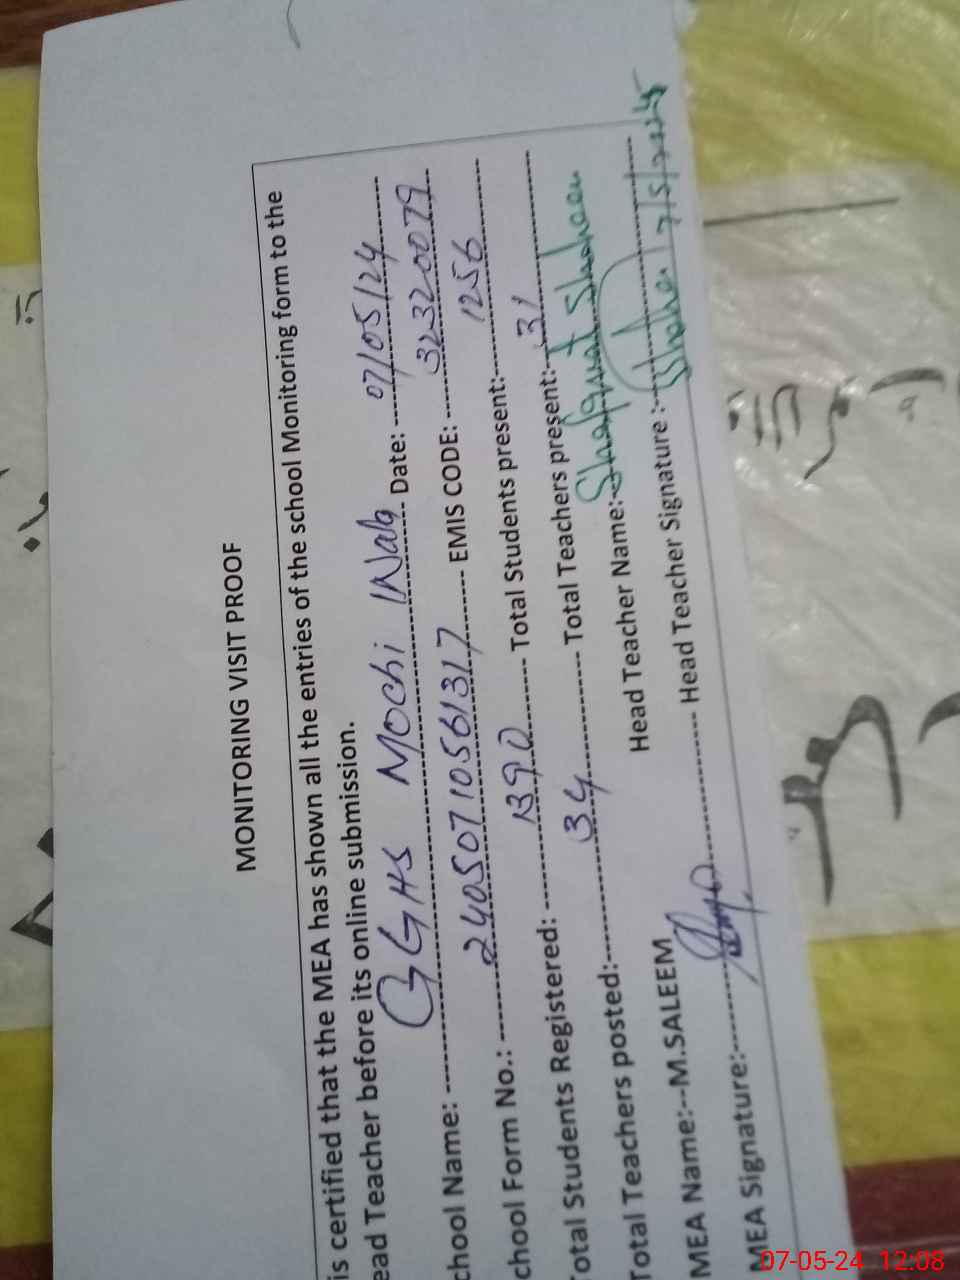 MONITORING VISIT PROOF
is certified that the MEA has shown all the entries of the school Monitoring form to the
ead Teacher before its online submission.
chool Name: GGHS Mochi Wala Date: 07/05/24
chool Form No.: 24050710561317 EMIS CODE: 32320079
Total Students Registered: 1390 Total Students present: 1256
Total Teachers posted: 34 Total Teachers present: 31
MEA Name:--M.SALEEM Head Teacher Name: Shafquat Shaheen
MEA Signature: Head Teacher Signature : Shaheen 7/5/2024
07-05-24 12:08